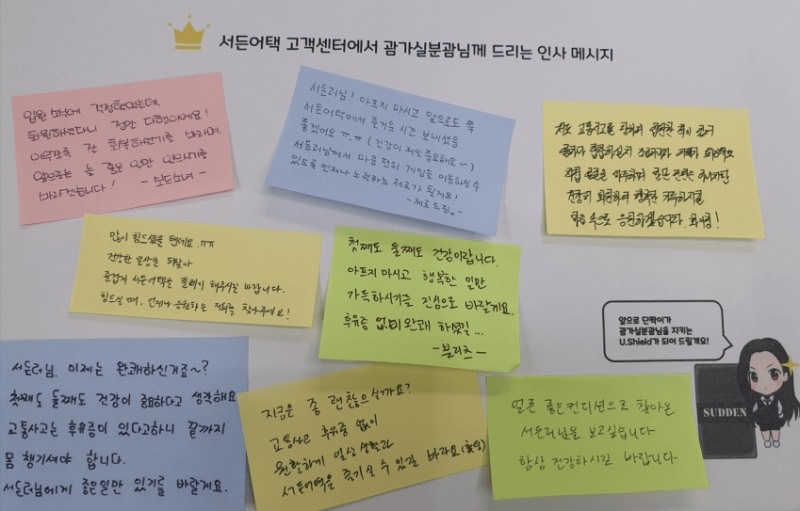 서든어택 고객센터에서 괌가실분괌님께 드리는 인사 메시지
입원 소식에 걱정했었는데,
퇴원하셨다니 정말 다행이에요!
아무쪼록 잘 회복하시기를 바라며,
앞으로는 늘 좋은 일만 있으시기를
바라겠습니다! - 보드소녀 -
서든러님! 아프지 마시고 앞으로도 쭉
서든어택에서 즐거운 시간 보내셨음
좋겠어요 ㅠ.ㅠ (건강이 제일 중요해요~)
서든러님께서 마음 편히 게임을 이용하실 수
있도록 언제나 노력하는 제로가 될게요!
- 제로드림 -
저도 교통사고를 당하여 입원한 적이 있어
직접 얼굴을 마주하며
건강히 회복하여 행복한 가득하시길
마음 속으로 응원하겠습니다. 화이팅!
많이 힘드셨을 텐데요 ㅠㅠ
건강한 일상을 되찾아
즐겁게 서든어택을 플레이 해주시길 바랍니다.
힘드실 때, 언제나 응원하는 저희를 찾아주세요!
첫째도 둘째도 건강이랍니다.
아프지 마시고 행복한 일만
가득하시기를 진심으로 바랄게요.
후유증 없이 완쾌 하셨길...
- 블리츠 -
앞으로 단짝이가
괌가실분괌님을 지키는
U.Shield가 되어 드릴게요!
SUDDEN
서든러님. 이제는 완쾌하신거죠~?
첫째도 둘째도 건강이 중요하다고 생각해요
교통사고는 후유증이 있다고하니 끝까지
몸 챙기셔야 합니다.
서든러님에게 좋은일만 있기를 바랄게요.
지금은 좀 괜찮으실까요?
교통사고 후유증 없이
원활하게 일상 생활과
서든어택을 즐기실 수 있길 바라요
얼른 좋은컨디션으로 찾아온
서든러님을 보고싶습니다
항상 건강하시길 바랍니다-